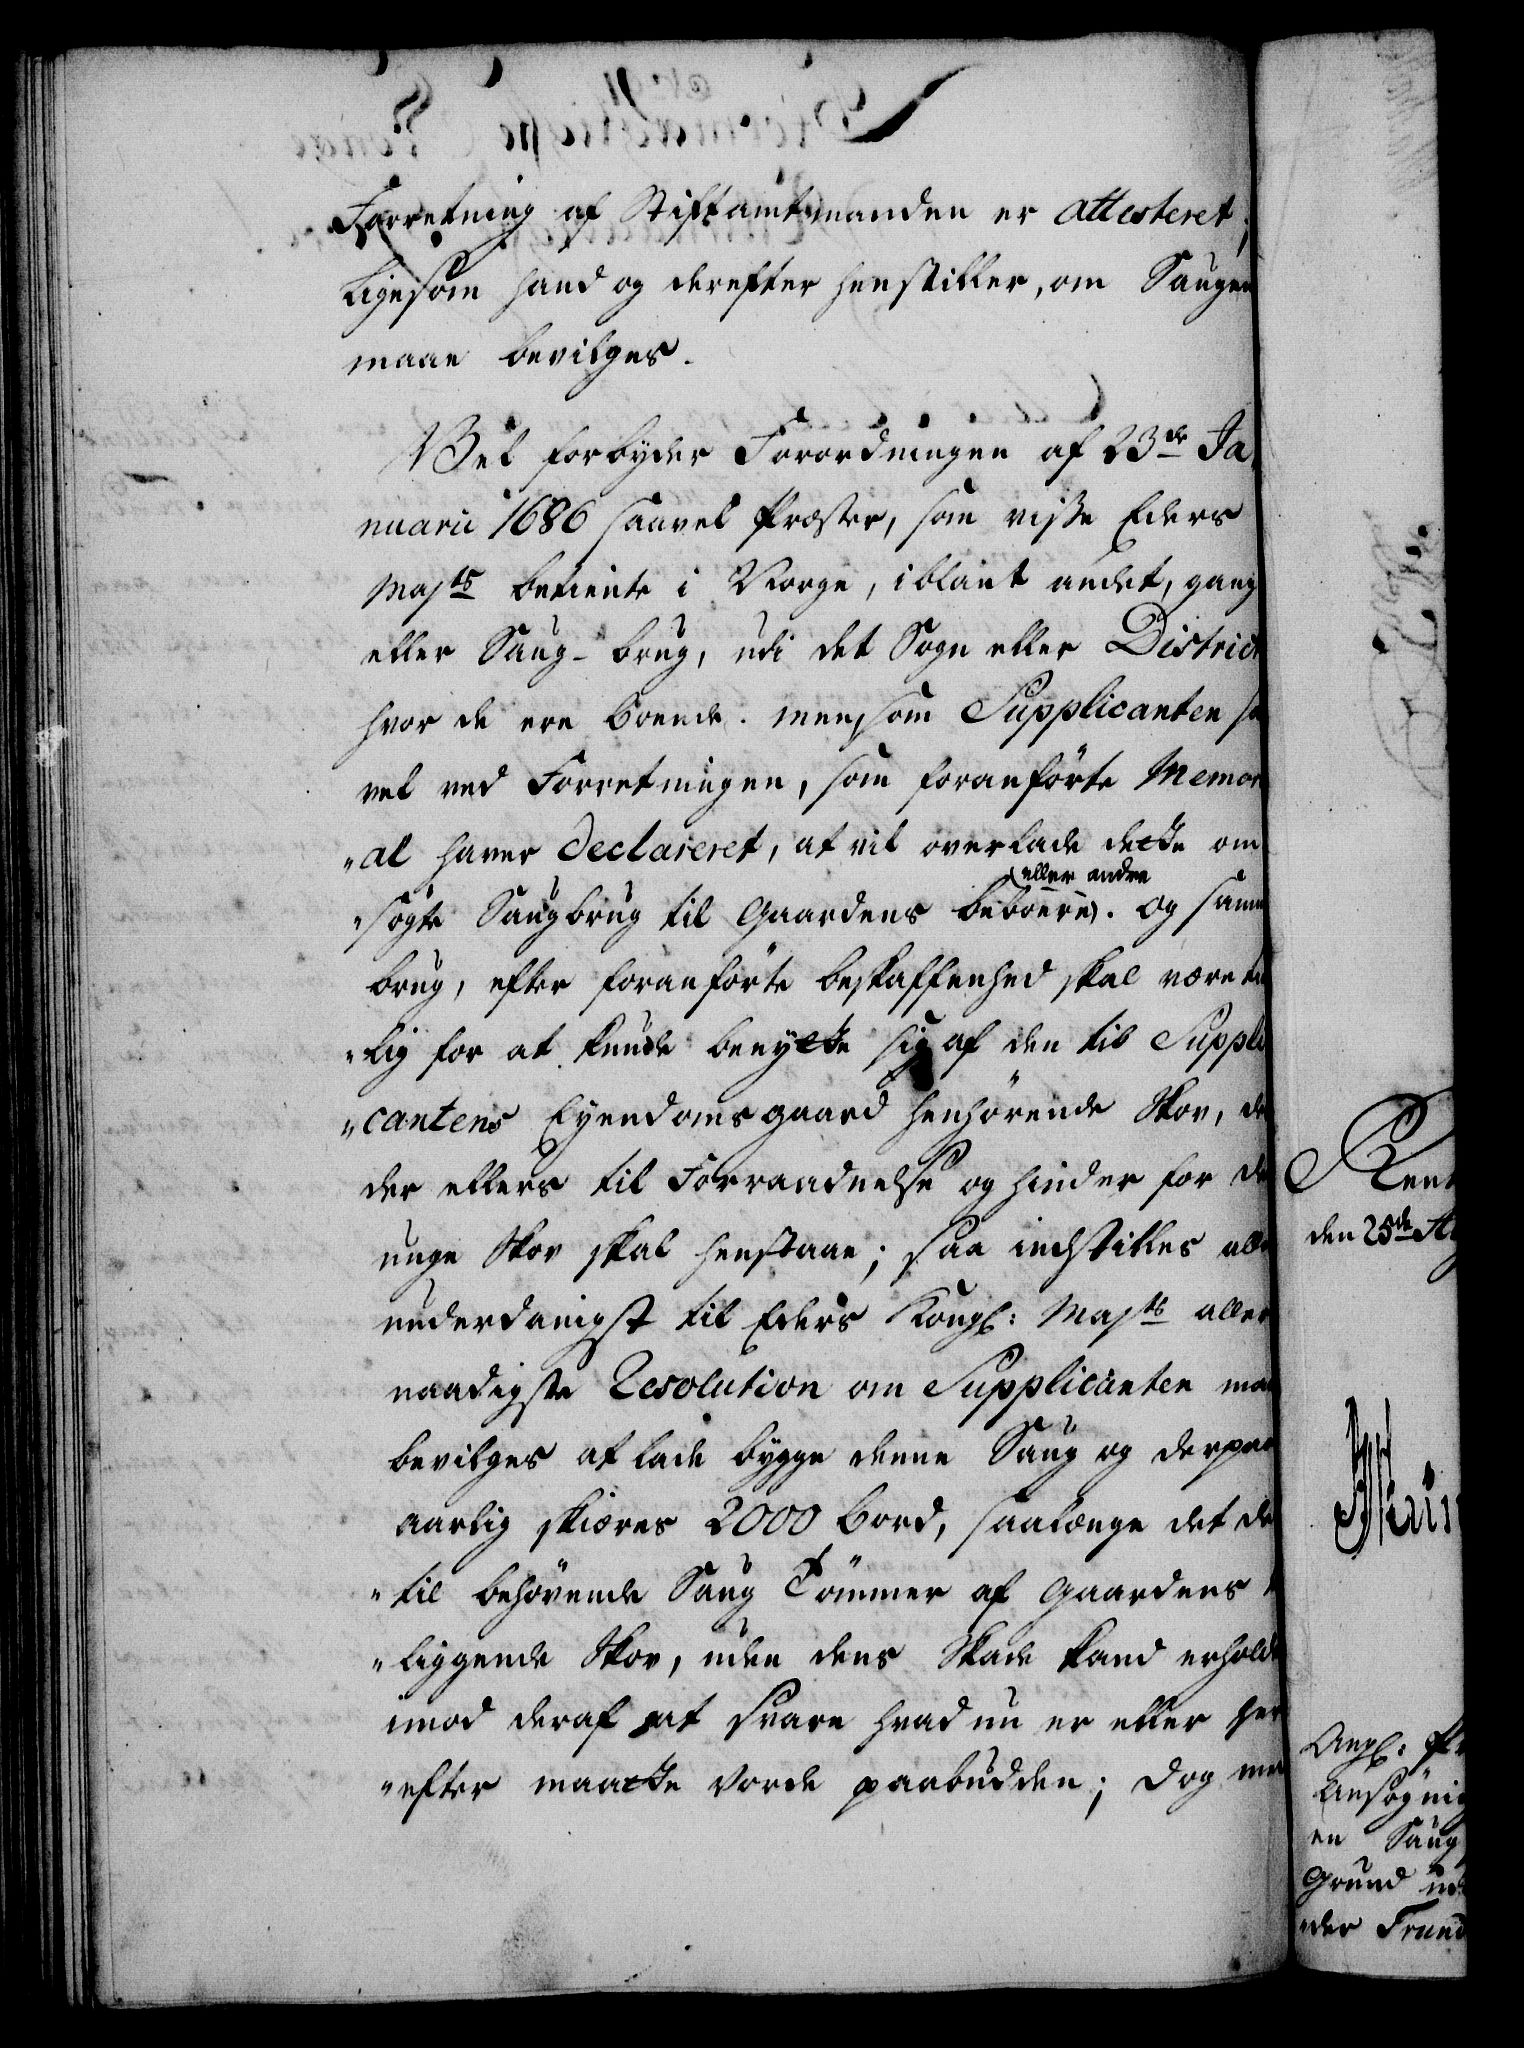 Forretning af Stiftamtmanden er attesteret;
ligesom hand og derefter henstiller, om Saugen
maae bevilges.
Vel forbyder Forordningen af 23de Ja,
nuarii 1686 saavel Præster, som visse Eders
Majts betiente i Norge, iblant andet, gang
eller Saug-brug, udi det Sogn eller District
hvor de ere boende. men som Supplicanten
vel ved Forretningen, som foranførte Memori
"al haver declareret, at vil overlade dette om
eller andre
"søgte Saugbrug til Gaardens beboere). og samme
brug, efter foranførte beskaffenhed skal være
"lig for at kunde benytte sig af den til Suppli
"cantens Eyendoms gaard henhörende Skov,
der ellers til Forraadnelse og hinder for
unge Skov skal henstaae; saa indstilles aller
underdanigst til Eders Kongl: Majts aller
naadigste Resolution om Supplicanten maae
bevilges at lade bygge denne Saug og derpaa
aarlig skiæres 2000 bord, saalænge det der
"til behövende Saug Tömmer af Gaardens
"liggende Skov, uden dens Skade kand erholde
imod deraf at svare hvad nu er eller her
"efter maatte vorde paabudden; Dog
Rent
den 25de
Angl:
Ansøgning
en Saug
Grund
der